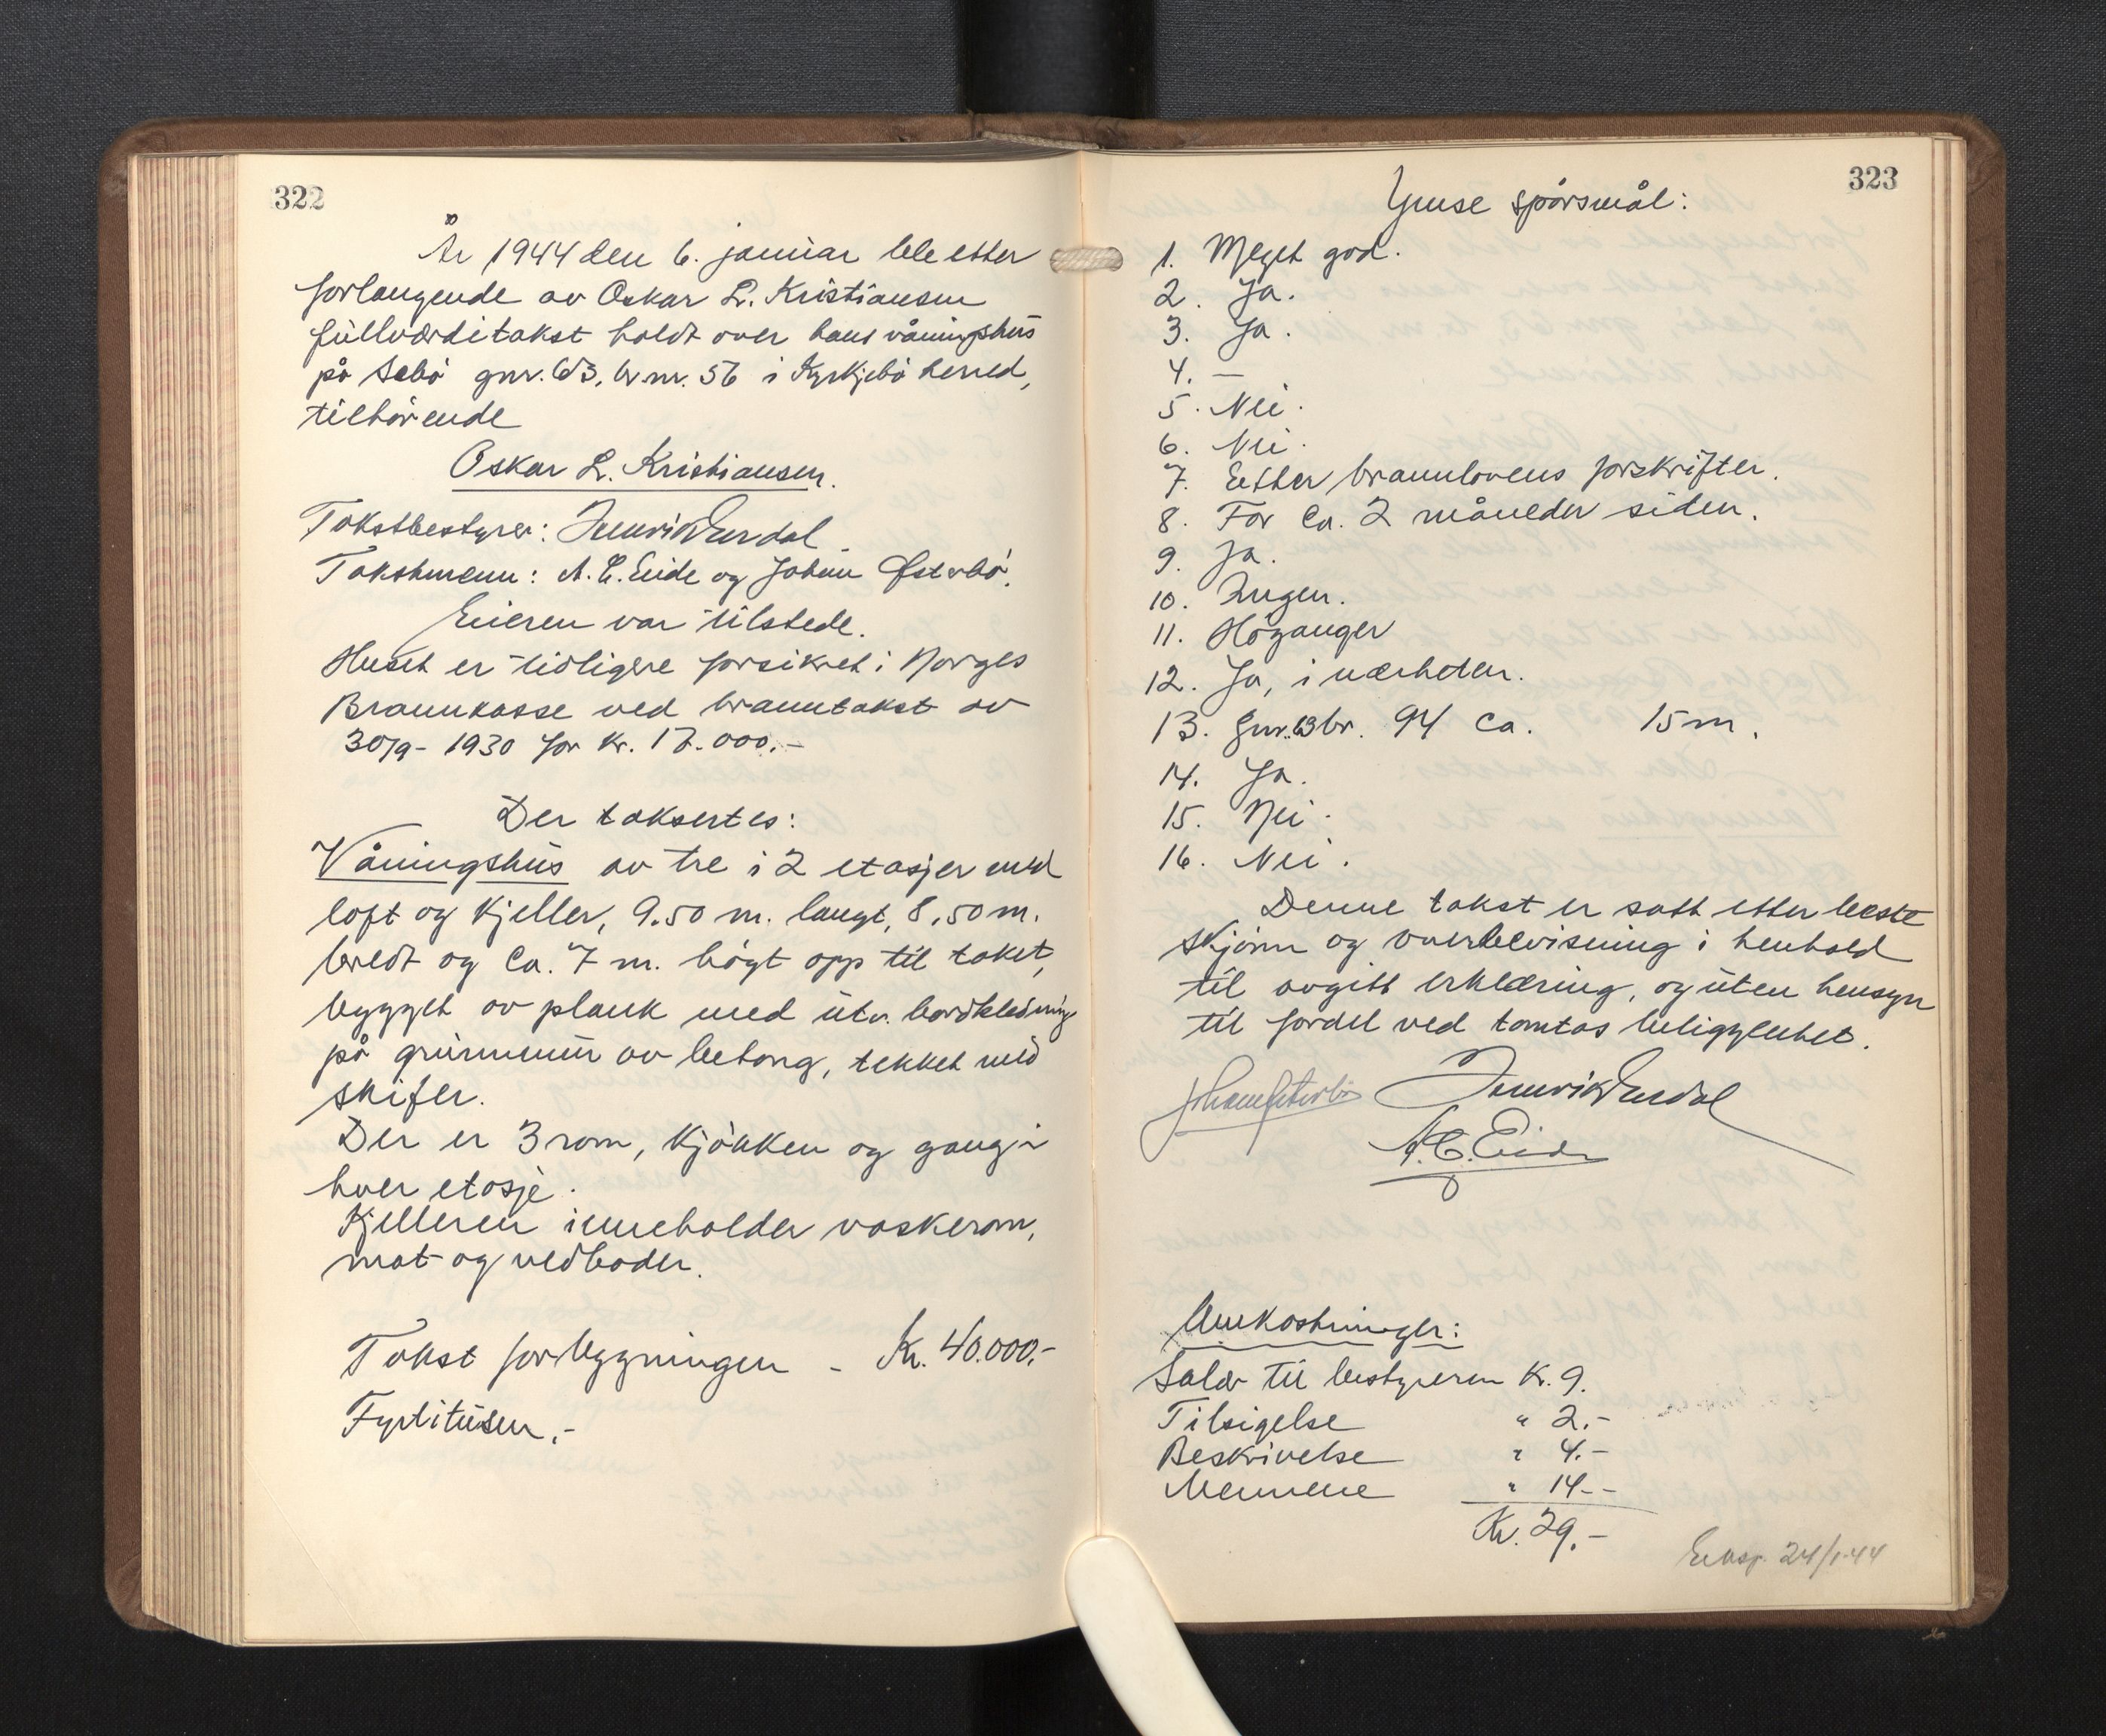 322
År 1944 den 6. januar ble etter
forlangende av Oskar L. Kristiansen
fullværditakst holdt over hans våningshus
på Sebö gnr. 63, br.nr. 56 i Kyrkjebö herred,
tilhörende
Oskar L. Kristiansen.
Takstbestyrer: Henrik Verdal
Takstmenn: A. E. Eide og Johan Østerbö.
Eieren var tilstede.
Huset er tidligere forsikret i Norges
Brannkasse ved branntakst av
30/9 - 1930 for kr. 17.000.-
Der taksertes:
Våningshus av tre i 2 etasjer med
loft og kjeller, 9.50 m. langt, 8.50 m.
bredt og ca. 7 m. högt opp til taket,
bygget av plank med utv. bordkledning
på grunnmur av betong, tekket med
skifer.
Der er 3 rom, kjökken og gang i
hver etasje.
Kjelleren inneholder vaskerom,
mat og vedboder.
Takst for bygningen - Kr. 40.000.-
Fyrtitusen.-
323
Ymse spörsmål:
1. Meget god.
2. Ja.
3. Ja.
4. —
5. Nei.
6. Nei.
7. Etter brannlovens forskrifter.
8. For ca. 2 måneder siden.
9. Ja.
10. Ingen.
11. Höyanger
12. Ja, i nærheten.
13. Gnr. 63 br. 94 ca. 15 m.
14. Ja.
15. Nei.
16. Nei.
Denne takst er satt etter beste
skjönn og overbevisning i henhold
til avgitt erklæring, og uten hensyn
til fordel ved tomtas beliggenhet.
Johan Østerbö Henrik Verdal
A. E. Eide
Omkostninger:
Salær til bestyreren Kr. 9.
Tilsigelse " 2.-
Beskrivelse " 4.-
Mennene " 14.-
Kr. 29.-
Eksp. 24/1-44